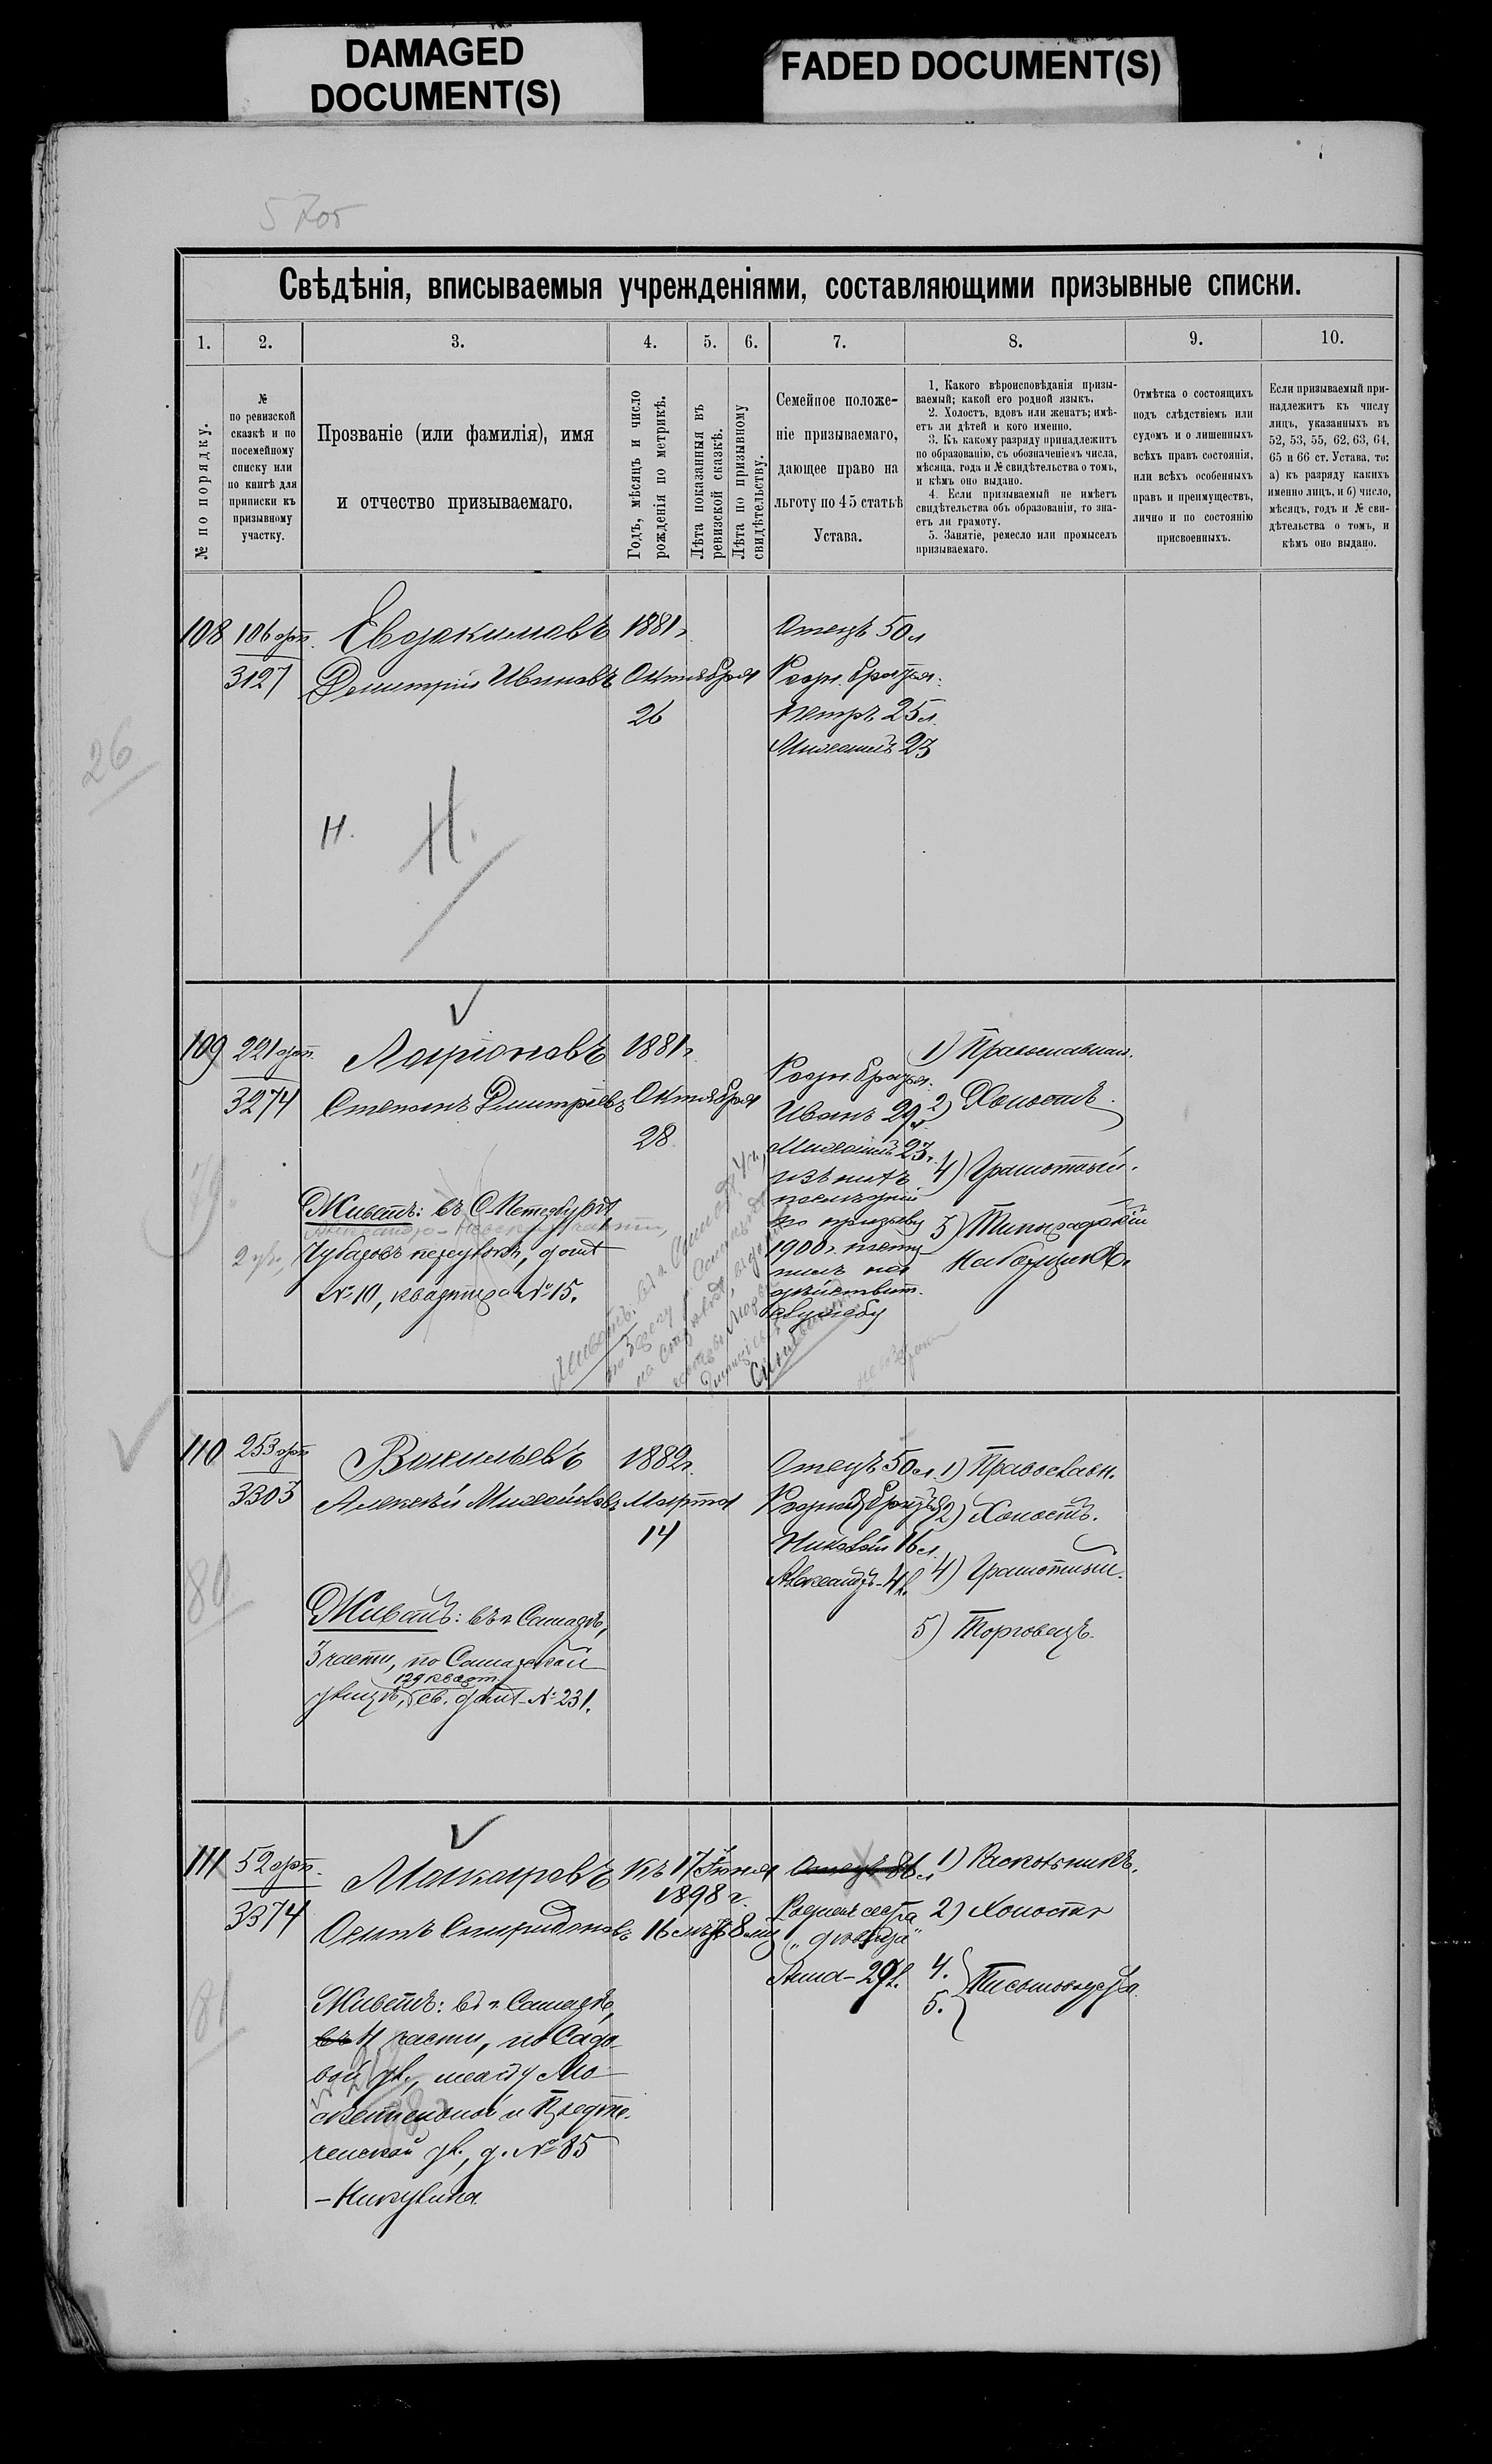 DAMAGED
DOCUMENT(S)
FADED DOCUMENT(S)
Свѣдѣнія, вписываемыя учрежденіями, составляющими призывные списки.
1.
2.
3.
4.
5.
6.
7.
8.
9.
10.
№ по порядку.
№
по ревизской
сказкѣ и по
посемейному
списку или
по книгѣ для
приписки къ
призывному
участку.
Прозваніе (или фамилія), имя
и отчество призываемаго.
Годъ, мѣсяцъ и число
рожденія по метрикѣ.
Лѣта показанныя въ
ревизской сказкѣ.
Лѣта по призывному
свидѣтельству.
Семейное положе-
ніе призываемаго,
дающее право на
льготу по 45 статьѣ
Устава.
1. Какого вѣроисповѣданія призы-
ваемый; какой его родной языкъ.
2. Холостъ, вдовъ или женатъ; имѣ-
етъ ли дѣтей и кого именно.
3. Къ какому разряду принадлежитъ
по образованію, съ обозначеніемъ числа,
мѣсяца, года и № свидѣтельства о томъ,
и кѣмъ оно выдано.
4. Если призываемый не имѣетъ
свидѣтельства объ образованіи, то зна-
етъ ли грамоту.
5. Занятіе, ремесло или промыселъ
призываемаго.
Отмѣтка о состоящихъ
подъ слѣдствіемъ или
судомъ и о лишенныхъ
всѣхъ правъ состоянія,
или всѣхъ особенныхъ
правъ и преимуществъ,
лично и по состоянію
присвоенныхъ.
Если призываемый при-
надлежитъ къ числу
лицъ, указанныхъ въ
52, 53, 55, 62, 63, 64,
65 и 66 ст. Устава, то:
а) къ разряду какихъ
именно лицъ, и б) число,
мѣсяцъ, годъ и № сви-
дѣтельства о томъ, и
кѣмъ оно выдано.
26
108
106
3127
Евдокимовъ
Дмитрій Ивановъ
1881 г.
Октября
26
Отецъ 50 л
Родн. братья:
Петръ 25 л.
Михаилъ 23
Н.
Н.
109
221
3274
Ларіоновъ
Степанъ Дмитріевъ
1881 г.
Октября
28
Родн. братья:
Иванъ 29
Михаилъ 23 г.
изъ нихъ
послѣдній
по призыву
1900 г.
на
дѣйствит.
службу
1) Православн.
2) Холостъ.
4) Грамотный.
5) Типографскій
наборщикъ.
Живетъ: въ С-Петербургѣ
Чубаровъ переулокъ, домъ
№ 10, квартира № 15.
110
253
3303
Васильевъ
Алексѣй Михайловъ
1882 г.
Марта
14
Отецъ 50 л.
Родные братья
Николай 16 л.
Александръ - 4 л.
1) Православн.
2) Холостъ.
4) Грамотный.
5) Торговецъ.
80
Живетъ: въ г. Самарѣ,
3 части, по Самарской
129 кварт.
улицѣ, св. домъ - № 231.
111
52
3374
Макаровъ
Осипъ Спиридоновъ
Къ 17 Іюня
1898 г.
16 лѣтъ 8 мѣс
Родная сестра
„ дѣвица "
Анна - 29 л.
1) Раскольникъ.
2) Холостъ
4.
5.
Письмоводства
81
Живетъ: въ г. Самарѣ,
въ 4 части, по Садо-
вой ул., между Мо-
скательной и Предте-
ченской ул., д. № 85
- Никулина.